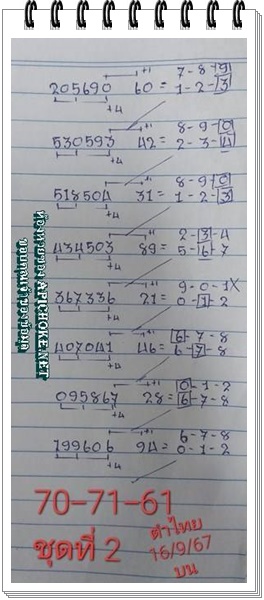 +1 7-8-9
205690 60 = 1-2-3
+4
+1 8-9-0
530593 42 = 2-3-4
+4
+1 8-9-0
518504 31 = 1-2-3
+4
+1 2-3-4
434503 89 = 5-6-7
+4
+1 9-0-1X
367336 21 = 0-1-2
+4
+1 6-7-8
407041 46 = 6-7-8
+4
+1 0-1-2
095867 28 = 6-7-8
+4
+1 6-7-8
799606 94 = 0-1-2
+4
70-71-61
ชุดที่ 2
คำไทย
16/9/67
บน
APICHOKE.NET